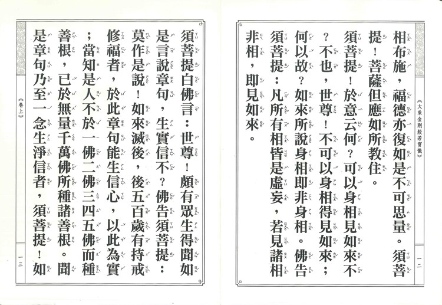 相布施，福德亦復如是不可思量。須菩
提！菩薩但應如所教住。
須菩提！於意云何？可以身相見如來不
？不也，世尊！不可以身相得見如來；
何以故？如來所說身相即非身相。佛告
須菩提：凡所有相皆是虛妄，若見諸相
非相，即見如來。
須菩提白佛言：世尊！頗有眾生得聞如
是言說章句，生實信不？佛告須菩提：
莫作是說！如來滅後，後五百歲有持戒
修福者，於此章句能生信心，以此為實
；當知是人不於一佛二佛三四五佛而種
善根，已於無量千萬佛所種諸善根。聞
是章句乃至一念生淨信者，須菩提！如